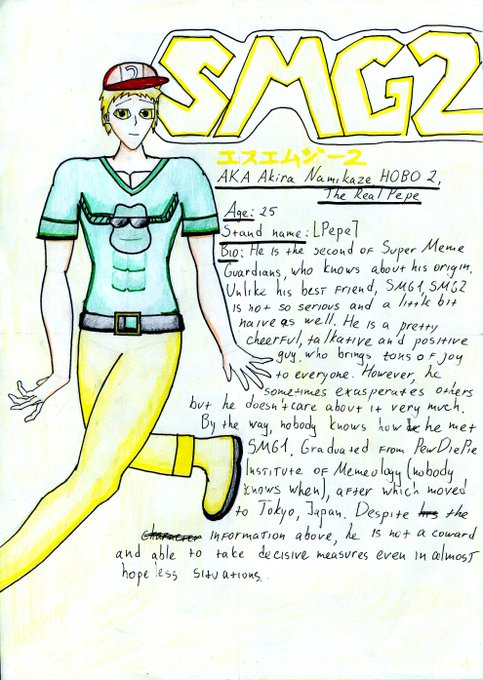 2
SMG2
エスエムジー2
AKA Akira Namikaze, HOBO 2,
The Real Pepe
Age: 25
Stand name: [Pepe]
Bio: He is the second of Super Meme
Guardians, who knows about his origin.
Unlike his best friend, SMG1, SMG2
is not so serious and a little bit
naive as well. He is a pretty
cheerful, talkative and positive
guy who brings tons of joy
to everyone. However, he
sometimes exasperates others
but he doesn't care about it very much.
By the way, nobody knows how he met
SMG1. Graduated from PewDiePie
Institute of Memeology (nobody
knows when), after which moved
to Tokyo, Japan. Despite his the
character information above, he is not a coward
and able to take decisive measures even in almost
hopeless situations.